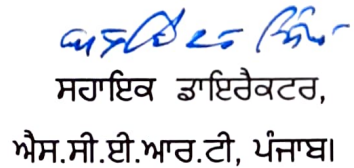 ਸਹਾਇਕ ਡਾਇਰੈਕਟਰ,
ਐਸ.ਸੀ.ਈ.ਆਰ.ਟੀ, ਪੰਜਾਬ।